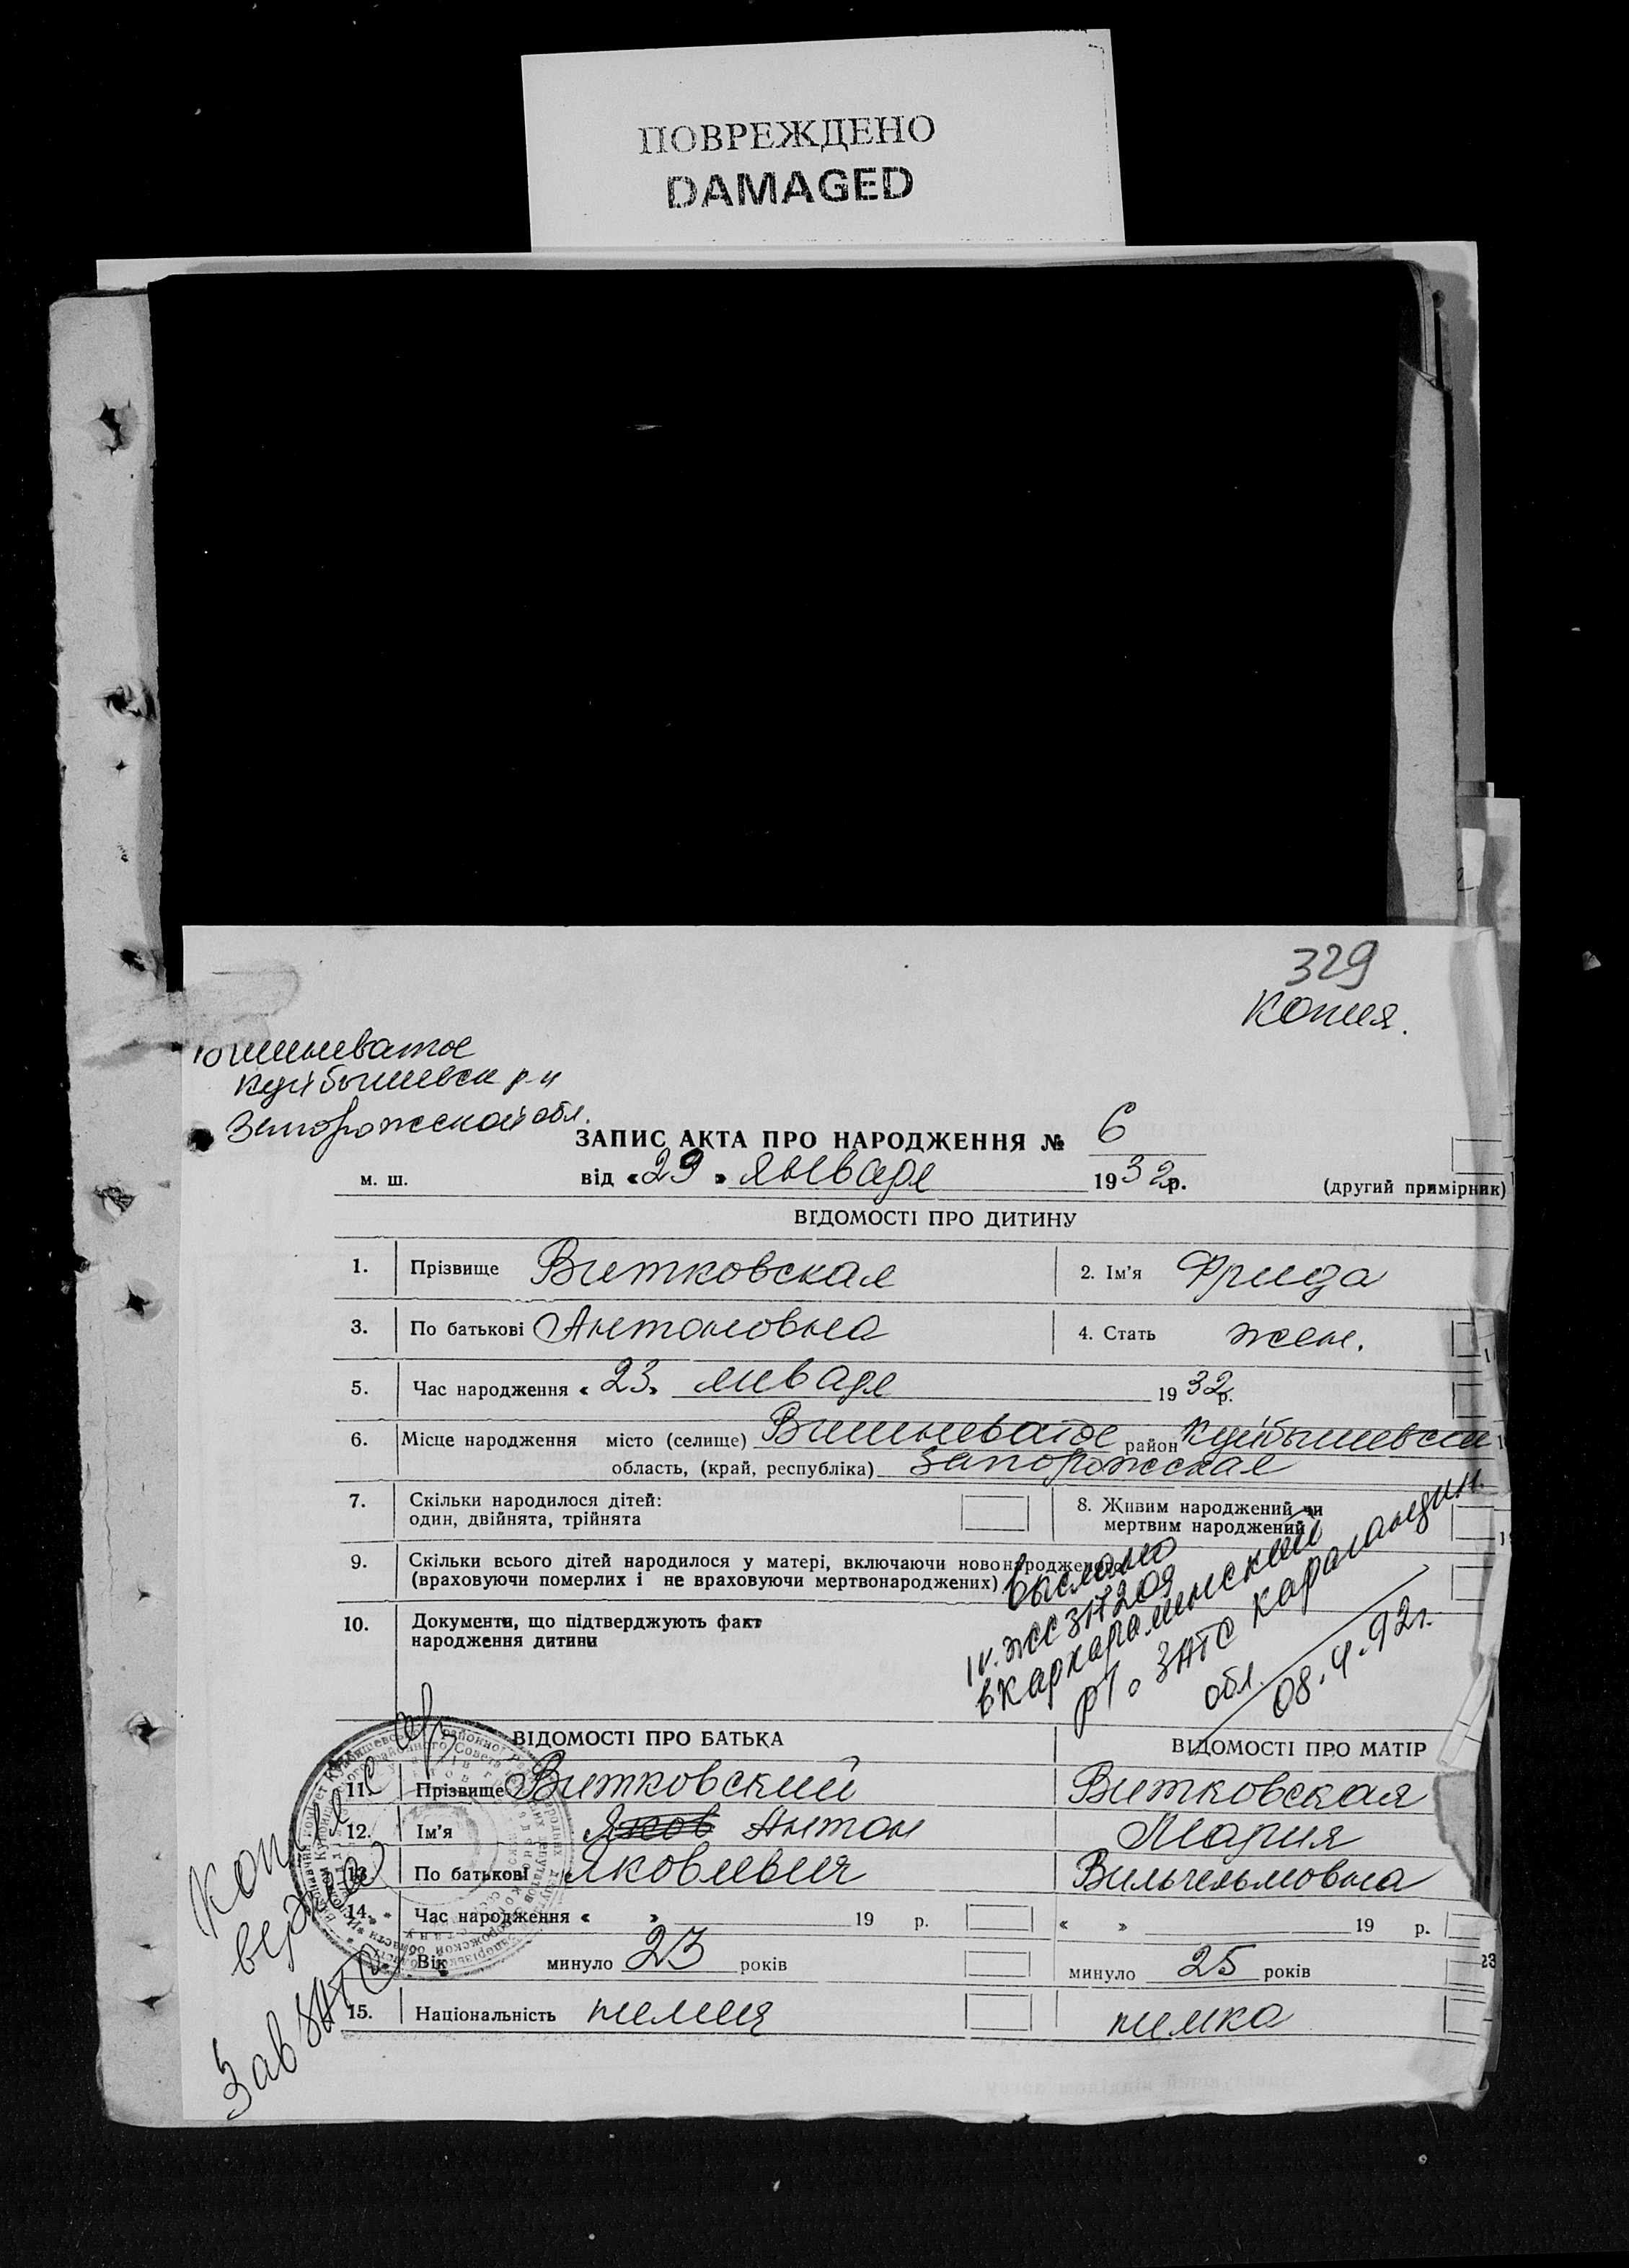 ПОВРЕЖДЕНО
DAMAGED
329
Копия.
Вишневатое
Куйбышевск р-н
Запорожской обл.
ЗАПИС АКТА ПРО НАРОДЖЕННЯ № 6
м. ш. від «29» января 1932р. (другий примірник)
ВІДОМОСТІ ПРО ДИТИНУ
1. Прізвище Витковская 2. Ім'я Фрида
3. По батькові Антоновна 4. Стать жен.
5. Час народження «23» января 1932р.
6. Місце народження місто (селище) Вишневатое район Куйбышевск
область, (край, республіка) Запорожская
7. Скільки народилося дітей: 8. Живим народжений чи
один, двійнята, трійнята мертвим народжений
9. Скільки всього дітей народилося у матері, включаючи новонародженого
(враховуючи померлих і не враховуючи мертвонароджених)
10. Документи, що підтверджують факт
народження дитини
выслано
ЖС 317209
в Каркаралинский
р/о ЗАГС Карагандин.
обл.
08.4.92г.
ВІДОМОСТІ ПРО БАТЬКА ВІДОМОСТІ ПРО МАТІР
11. Прізвище Витковский Витковская
12. Ім'я Яков Антон Мария
13. По батькові Яковлевич Вильгельмовна
14. Час народження « » 19 р. « » 19 р.
Вік минуло 23 років минуло 25 років
15. Національність немец немка
23
Копия
верна
Зав ЗАГС